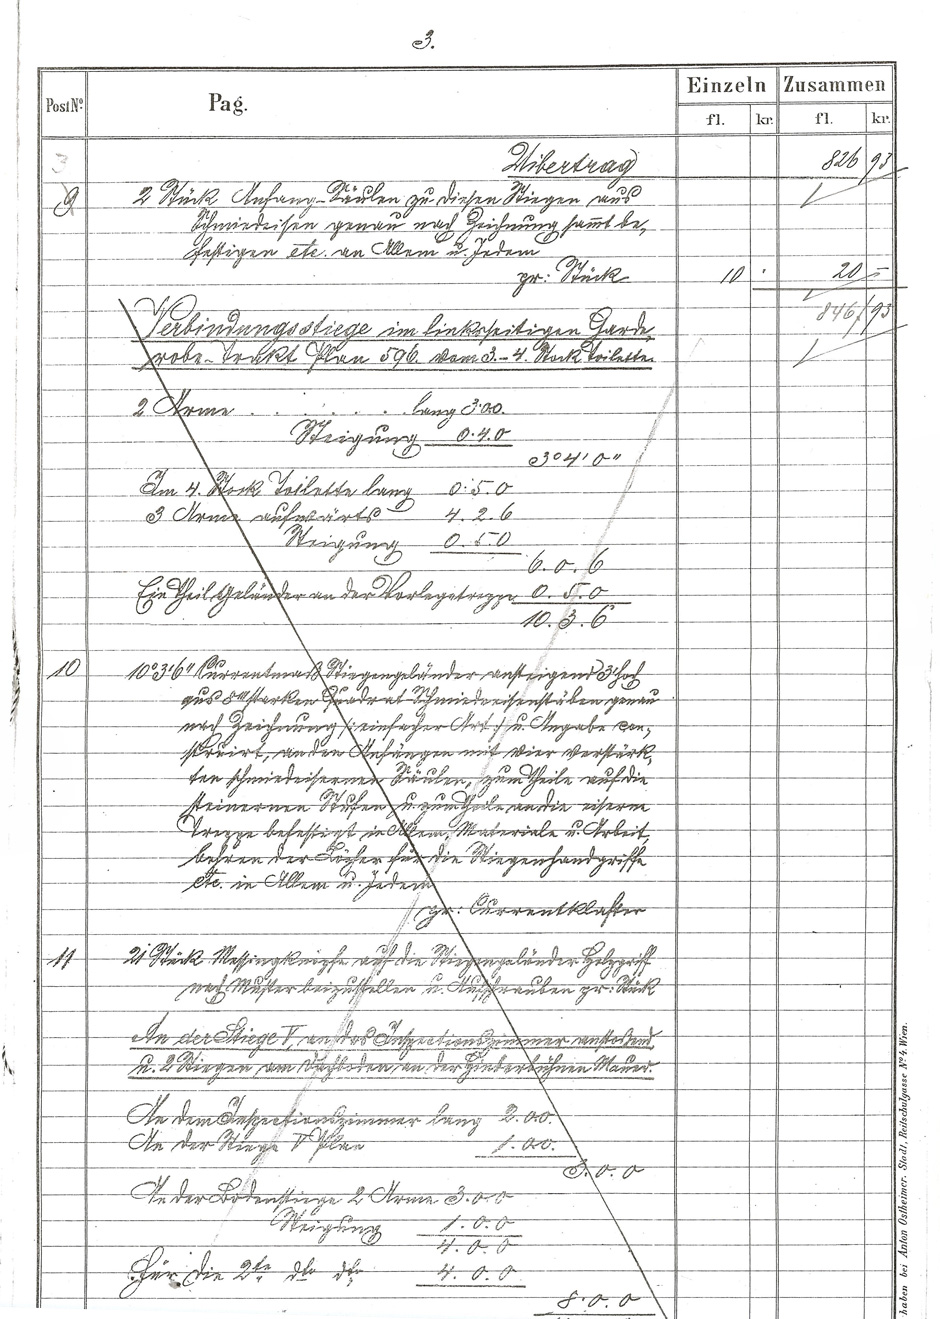 3.
Post No. Pag. Einzeln Zusammen
fl. kr. fl. kr.
3
Uibertrag 826 93
9 2 Stück Anfang-Säulen zu diesen Stiegen aus
Schmiedeisen genau nach Zeichnung sammt be-
festigen etc. an Allem u. Jedem
pr: Stück 10 · 20 –
846 93
Verbindungsstiege im linksseitigen Garde-
robe-Trakt Plan 596. vom 3.-4. Stock Toilette.
2 Arme . . . . . . lang 3.0.0.
Steigung 0.4.0
3° 4' 0"
Im 4. Stock Toilette lang 0.5.0
3 Arme aufwärts 4.2.6
Steigung 0.5.0
6.0.6
Ein Theil Geländer an der Vorlegetreppe 0.5.0
10.3.6
10 10° 3' 6" Currentmaß Stiegengeländer ansteigend 3' hoch
aus 8''' starken Quadrat Schmiedeisenstäben genau
nach Zeichnung /: einfacher Art :/ u. Angabe con-
struirt, an den Anfängen mit vier verstärk-
ten schmiedeisernen Säulen, zum Theile auf die
steinernen Stufen u. zum Theile an die eiserne
Treppe befestigt in Allem, Materiale u. Arbeit,
bohren der Löcher für die Stiegenhandgriffe
etc. in Allem u. Jedem
pr: Currentklafter
11 21 Stück Messingknöpfe auf die Stiegengeländer Holzgriff
nach Muster beizustellen u. Aufschrauben pr: Stück
An der Stiege V, an das Inspectionszimmer anstoßend,
u. 2 Stiegen am Dachboden an der Hinterbühnen Mauer.
An dem Inspectionszimmer lang 2.0.0.
An der Stiege V Plan 1.0.0.
3.0.0
An der Bodenstiege 2 Arme 3.0.0
Steigung 1.0.0
4.0.0
Für die 2te dto dto 4.0.0
8.0.0
haben bei Anton Ostheimer, Stadt, Reitschulgasse No 4, Wien.